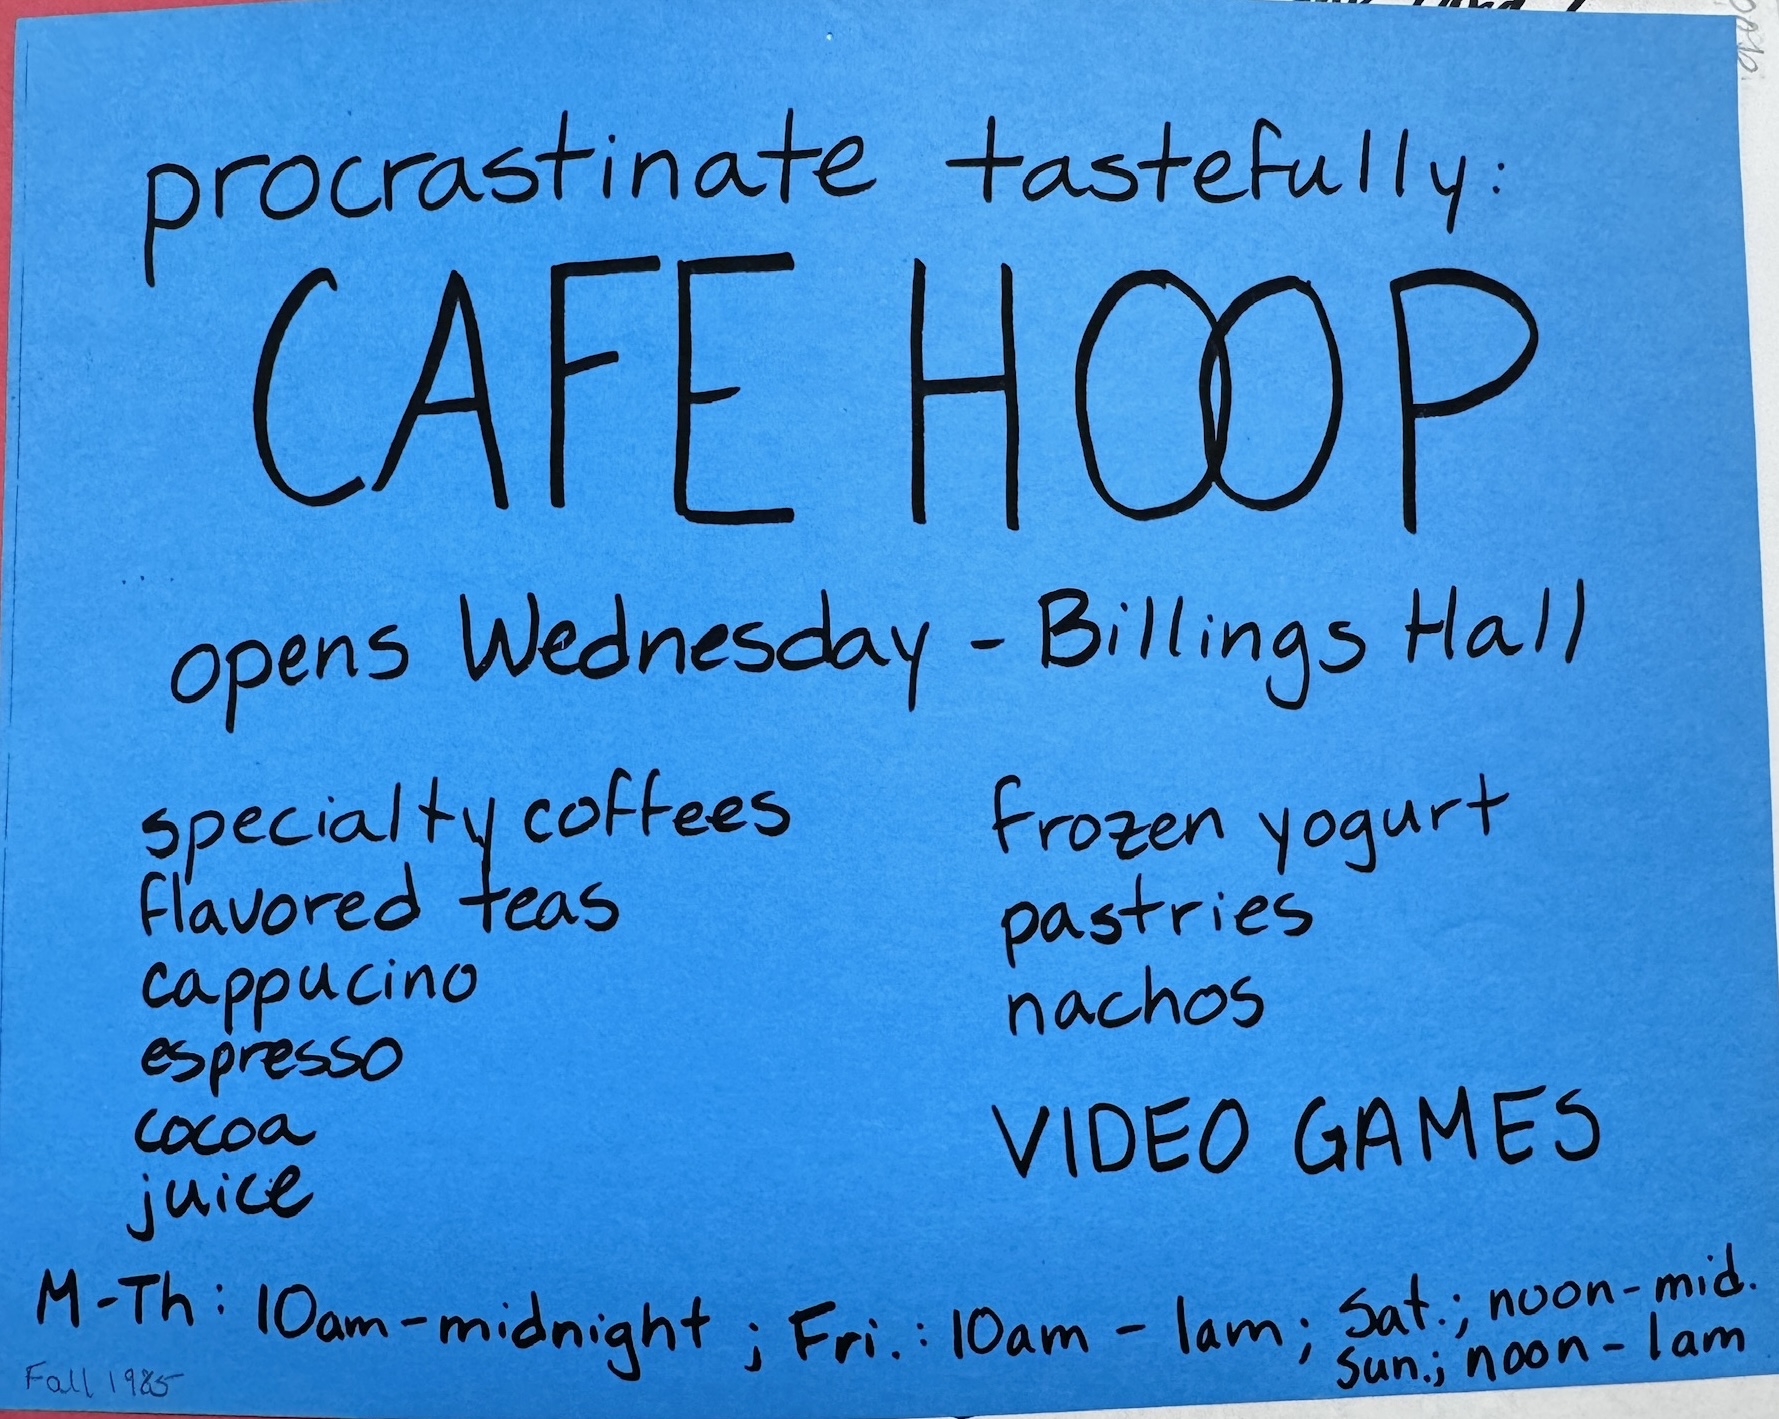 procrastinate tastefully:
CAFE HOOP
opens Wednesday - Billings Hall
specialty coffees
flavored teas
cappucino
espresso
cocoa
juice
frozen yogurt
pastries
nachos
VIDEO GAMES
M-Th: 10am-midnight ; Fri.: 10am - 1am; Sat.; noon-mid.
Sun.; noon-1am
Fall 1985